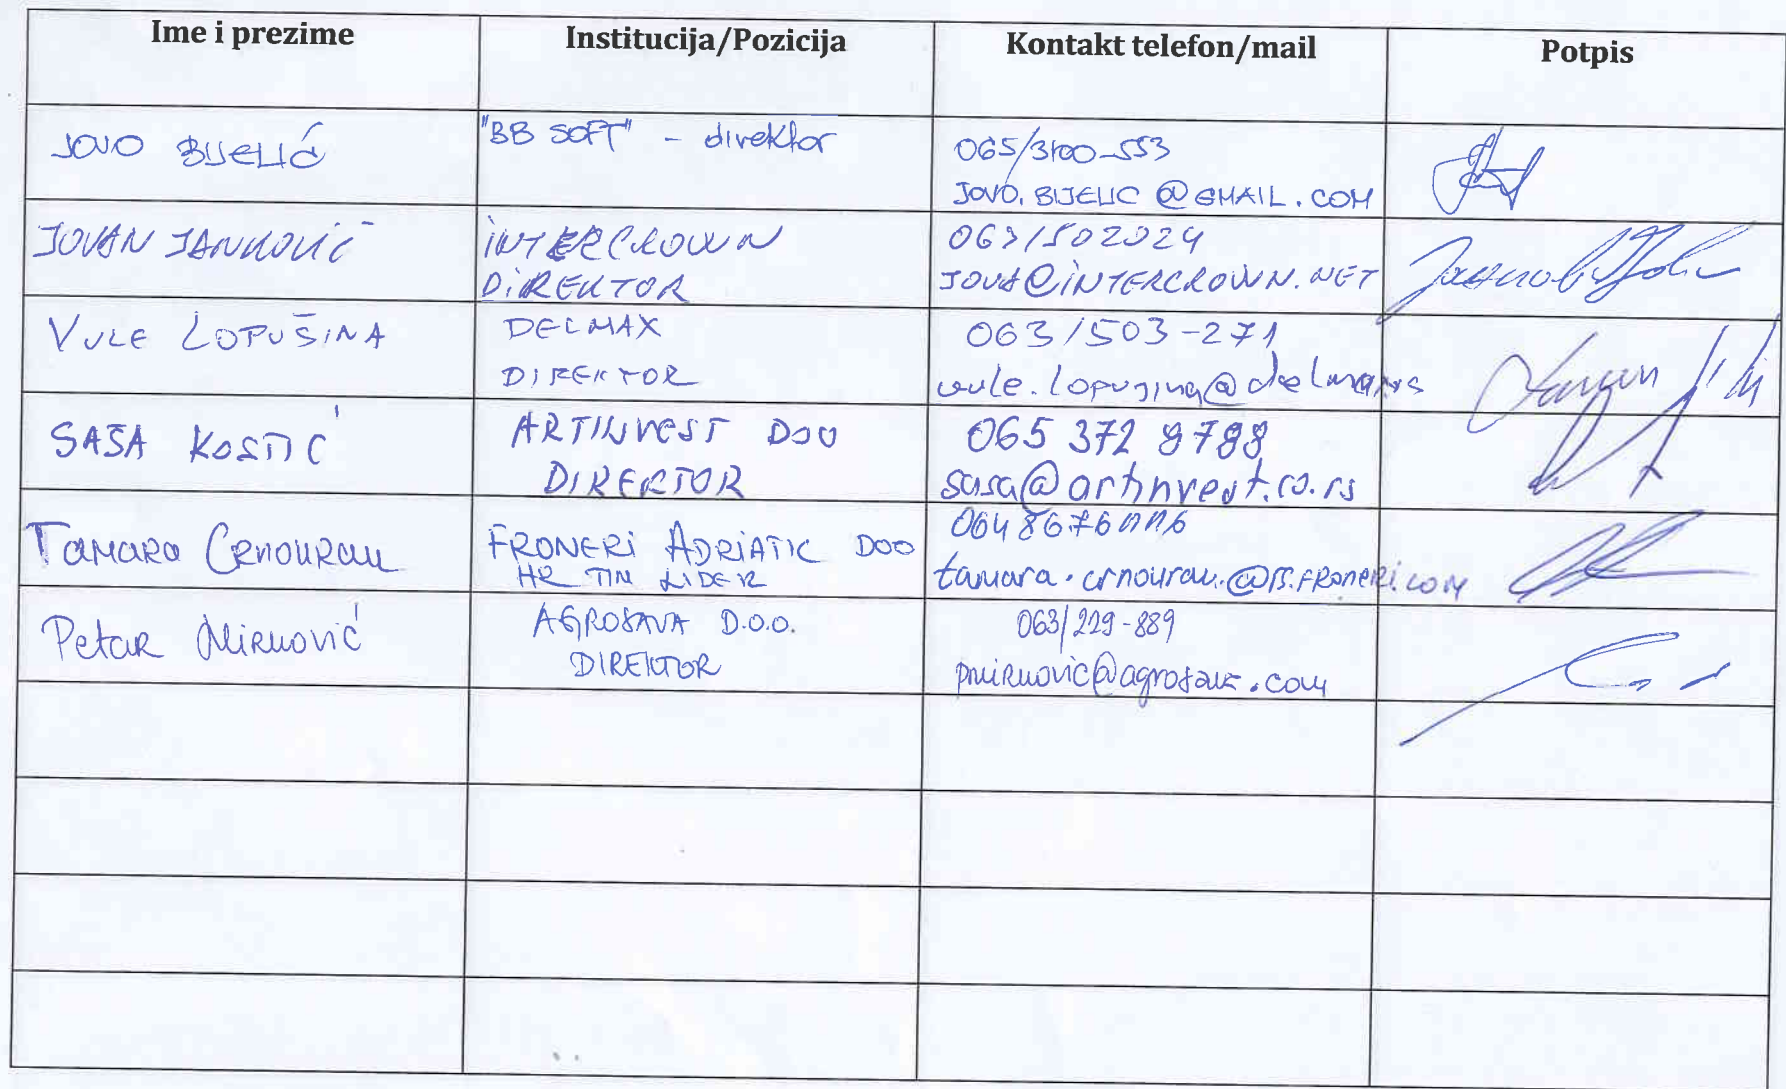 Ime i prezime Institucija/Pozicija Kontakt telefon/mail Potpis
JOVO BIJELIĆ "BB SOFT" - direktor 065/3100-553
JOVO.BIJELIC@GMAIL.COM
JOVAN JANKOVIĆ INTERCROWN 063/502024
DIREKTOR JOVA@INTERCROWN.NET
VULE LOPUŠINA DELMAX 063/503-271
DIREKTOR vule.lopusina@delmax.rs
SAŠA KOSTIĆ ARTINVEST DOO 065 372 8788
DIREKTOR sasa@artinvest.co.rs
Tamara Crnourau FRONERI ADRIATIC DOO
HR TIM LIDER tamara.crnourau@rs.froneri.com
Petar Mirković AGROSAVA D.O.O. 063/229-889
DIREKTOR pmirkovic@agrosava.com